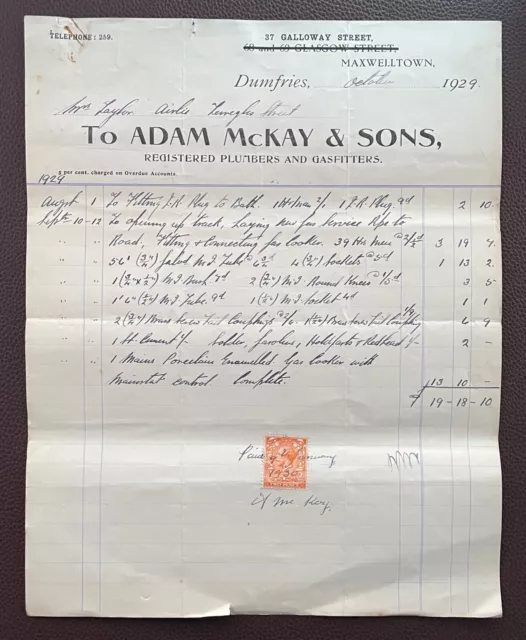 TELEPHONE: 259.
37 GALLOWAY STREET,
68 and 69 GLASGOW STREET,
MAXWELLTOWN,
Dumfries, October 1929.
Mrs Taylor Airlie Terregles Street
To ADAM McKAY & SONS,
REGISTERED PLUMBERS AND GASFITTERS.
5 per cent. charged on Overdue Accounts.
1929
August 1 To Fitting I.R. Plug to Bath. 1 Hr Man 2/1 1 I.R. Plug. 9d 2 10.
Septr 10-12 To opening up track, Laying new gas Service Pipe to
" " Road, Fitting & Connecting gas cooker. 39 Hrs Men @ 2/0½ 3 19 7.
" " 56' (¾") galvd M.I. Tube @ 6¾d 4 (¾") Sockets @ 5d 1 13 2.
" " 1 (¾" x ½") M.I. Bush 7d 2 (¾") M.I. Round Knees @ 1/5d 3 5
" " 1'6" (½") M.I. Tube 9d 1 (½") M.I. Socket 4d 1 1
" " 2 (¾") Brass Couplings @ 2/6. 1/9 6 9
" " 1 lb Cement Solder, Gasolene, Hallgate & Redlead 2 -
" " 1 Mains Porcelain Enamelled Gas Cooker with
Mainstat Control Complete. 13 10 -
£ 19 - 18 - 10
Paid January
1930
A McKay